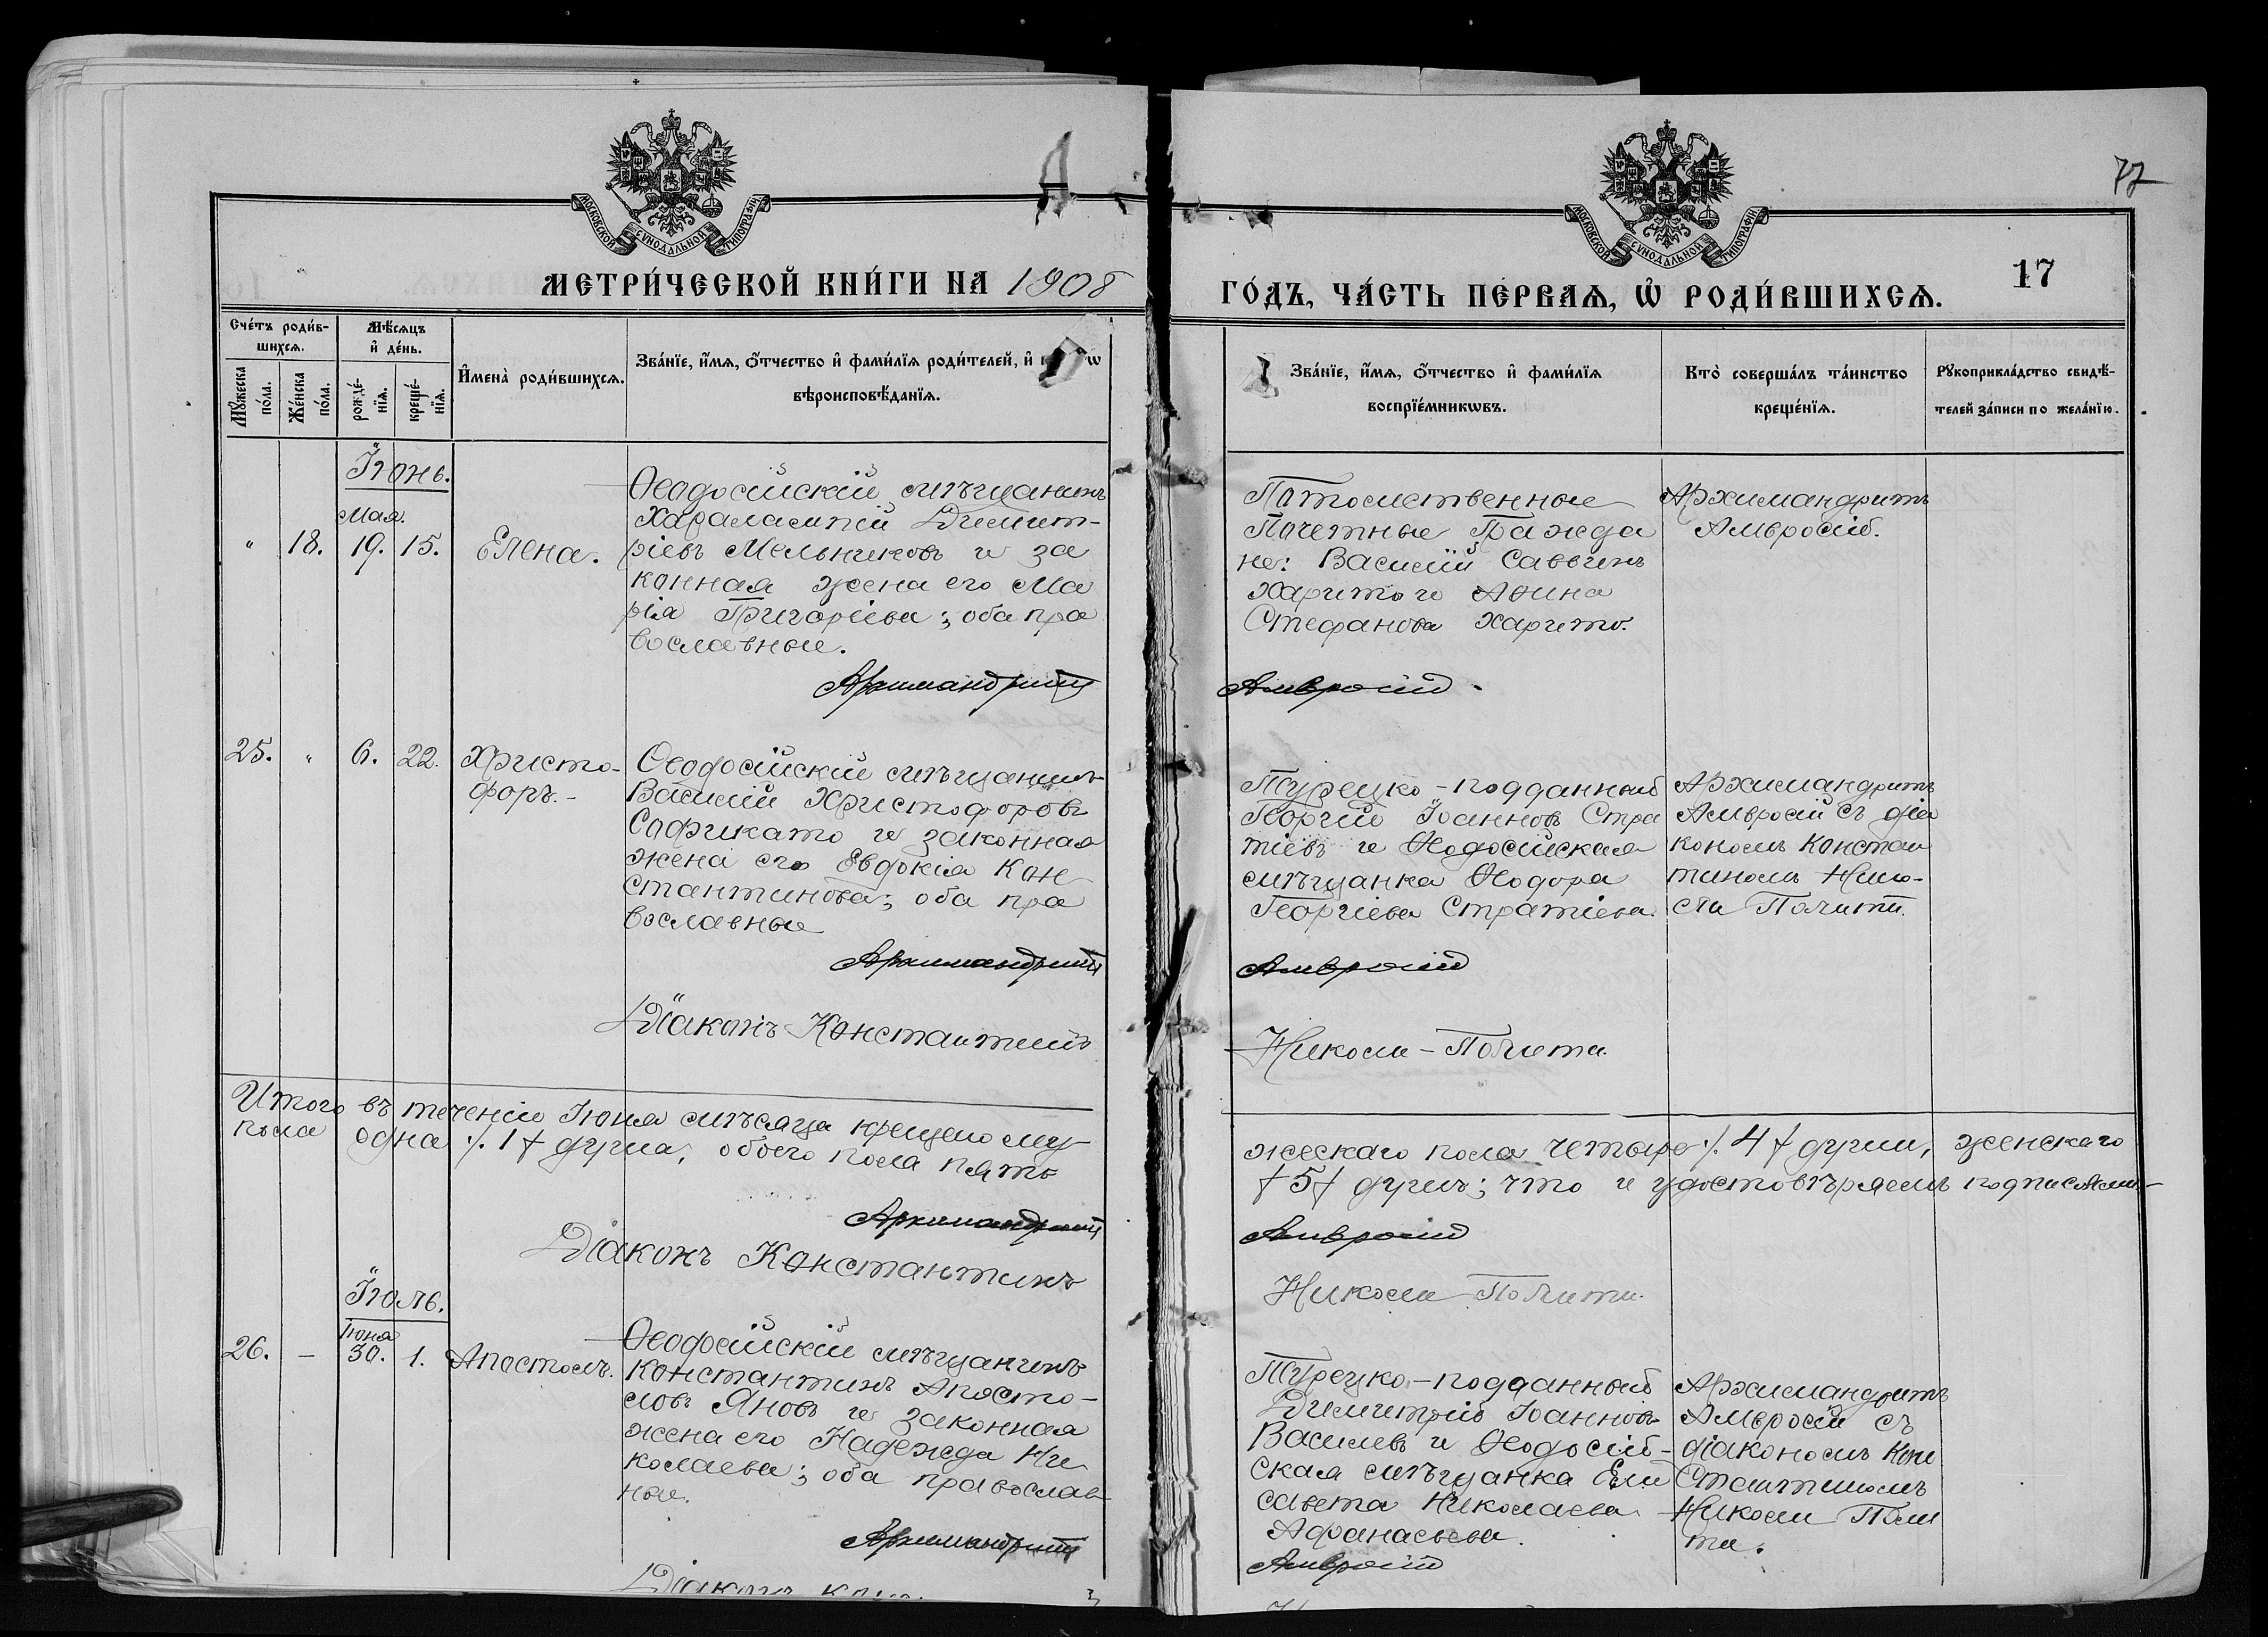 МОСКОВСКОЙ СѴНОДАЛЬНОЙ ТИПОГРАФІИ
МЕТРИ́ЧЕСКОЙ КНИ́ГИ НА 1908
Сче́тъ роди́в-
шихсѧ.
Мѣ́сѧцъ
и҆ де́нь.
Мꙋ́жеска
по́ла.
Же́нска
по́ла.
рожде́-
нїѧ.
креще́-
нїѧ.
И҆мена̀ роди́вшихсѧ.
Зва́нїе, и҆́мѧ, ѻ҆́тчество и҆ фами́лїѧ роди́телей, и҆
вѣроисповѣ́данїѧ.
Іюнь.
Мая.
" 18. 19. 15. Елена.
Ѳеодосійскій мѣщанинъ
Харалампій Димит-
ріевъ Мельниковъ и за
конная жена его Ма
рія Григоріева; оба пра
вославные.
Архимандритъ
25. " 6. 22. Христо-
форъ.-
Ѳеодосійскій мѣщанинъ
Василій Христофоровъ
Софикато и законная
жена его Евдокія Кон
стантинова; оба пра
вославные
Архимандритъ
Діаконъ Константинъ
Итого въ теченіи Іюня мѣсяца крещено му-
пола одна ./. 1 / душа, обоего пола пять
Архимандритъ
Діаконъ Константинъ
Іюль.
Іюня
26. — 30. 1. Апостолъ.
Ѳеодосійскій мѣщанинъ
Константинъ Апосто-
ловъ Яновъ и законная
жена его Надежда Ни
колаева; оба православ
ные.
Архимандритъ
Діаконъ
77
МОСКОВСКОЙ СѴНОДАЛЬНОЙ ТИПОГРАФІИ
ГО́ДЪ, ЧА́СТЬ ПЕ́РВАѦ, Ѡ҆ РОДИ́ВШИХСѦ.
17
Зва́нїе, и҆́мѧ, ѻ҆́тчество и҆ фами́лїѧ
воспрїе́мникѡвъ.
Кто̀ соверша́лъ та́инство
креще́нїѧ.
Рꙋкоприкла́дство свидѣ́-
телей за́писи по жела́нїю.
Потомственные
Почетные Гражда
не: Василій Саввинъ
Харито и Аѳина
Стефанова Харито.
Архимандритъ
Амвросій.
Амвросій
Турецко-подданный
Георгій Іоанновъ Стра
тіевъ и Ѳеодосійская
мѣщанка Ѳеодора
Георгіева Стратіева.
Архимандритъ
Амвросій съ діа
кономъ Констан
тиномъ Нико-
ли Полити.
Амвросій
Николи-Полити.
жескаго пола четыре ./. 4 / души, женскаго
/ 5 / душъ; что и удостовѣряемъ подписями-
Амвросій
Николи Полити.
Турецко-подданный
Димитрій Іоанновъ
Василевъ и Ѳеодосій-
ская мѣщанка Ели
савета Николаева
Афанасьева.
Архимандритъ
Амвросій съ
діакономъ Кон
стантиномъ
Николи Поли
ти.
Амвросій